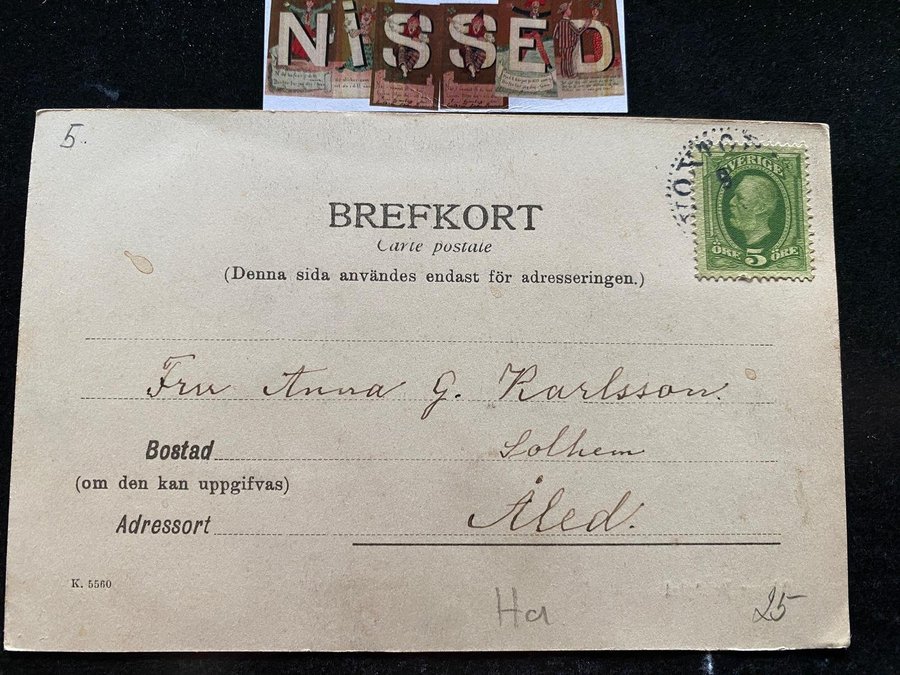 NISSED
5.
SVERIGE
ÖRE 5 ÖRE
BREFKORT
Carte postale
(Denna sida användes endast för adresseringen.)
Fru Anna G. Karlsson.
Bostad Solhem
(om den kan uppgifvas)
Adressort Åled.
K. 5560
Ha
25